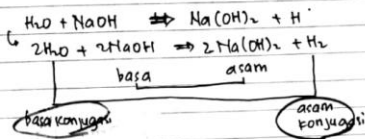 H₂O + NaOH ⇌ Na(OH)₂ + H
2H₂O + 2NaOH ⇌ 2Na(OH)₂ + H₂
basa asam
basa konjugasi asam konjugasi